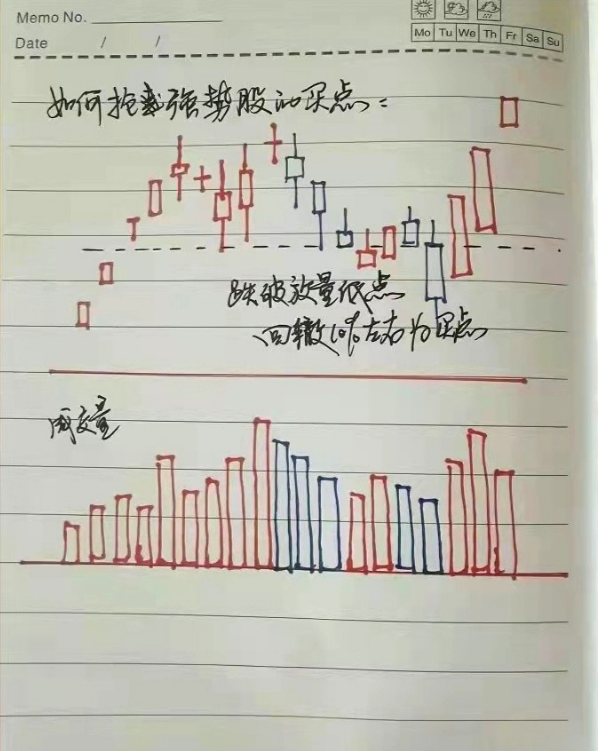 Memo No.
Mo Tu We Th Fr Sa Su
Date / /
如何抢截强势股的买点：
跌破放量低点
回撤10%左右为买点
成交量